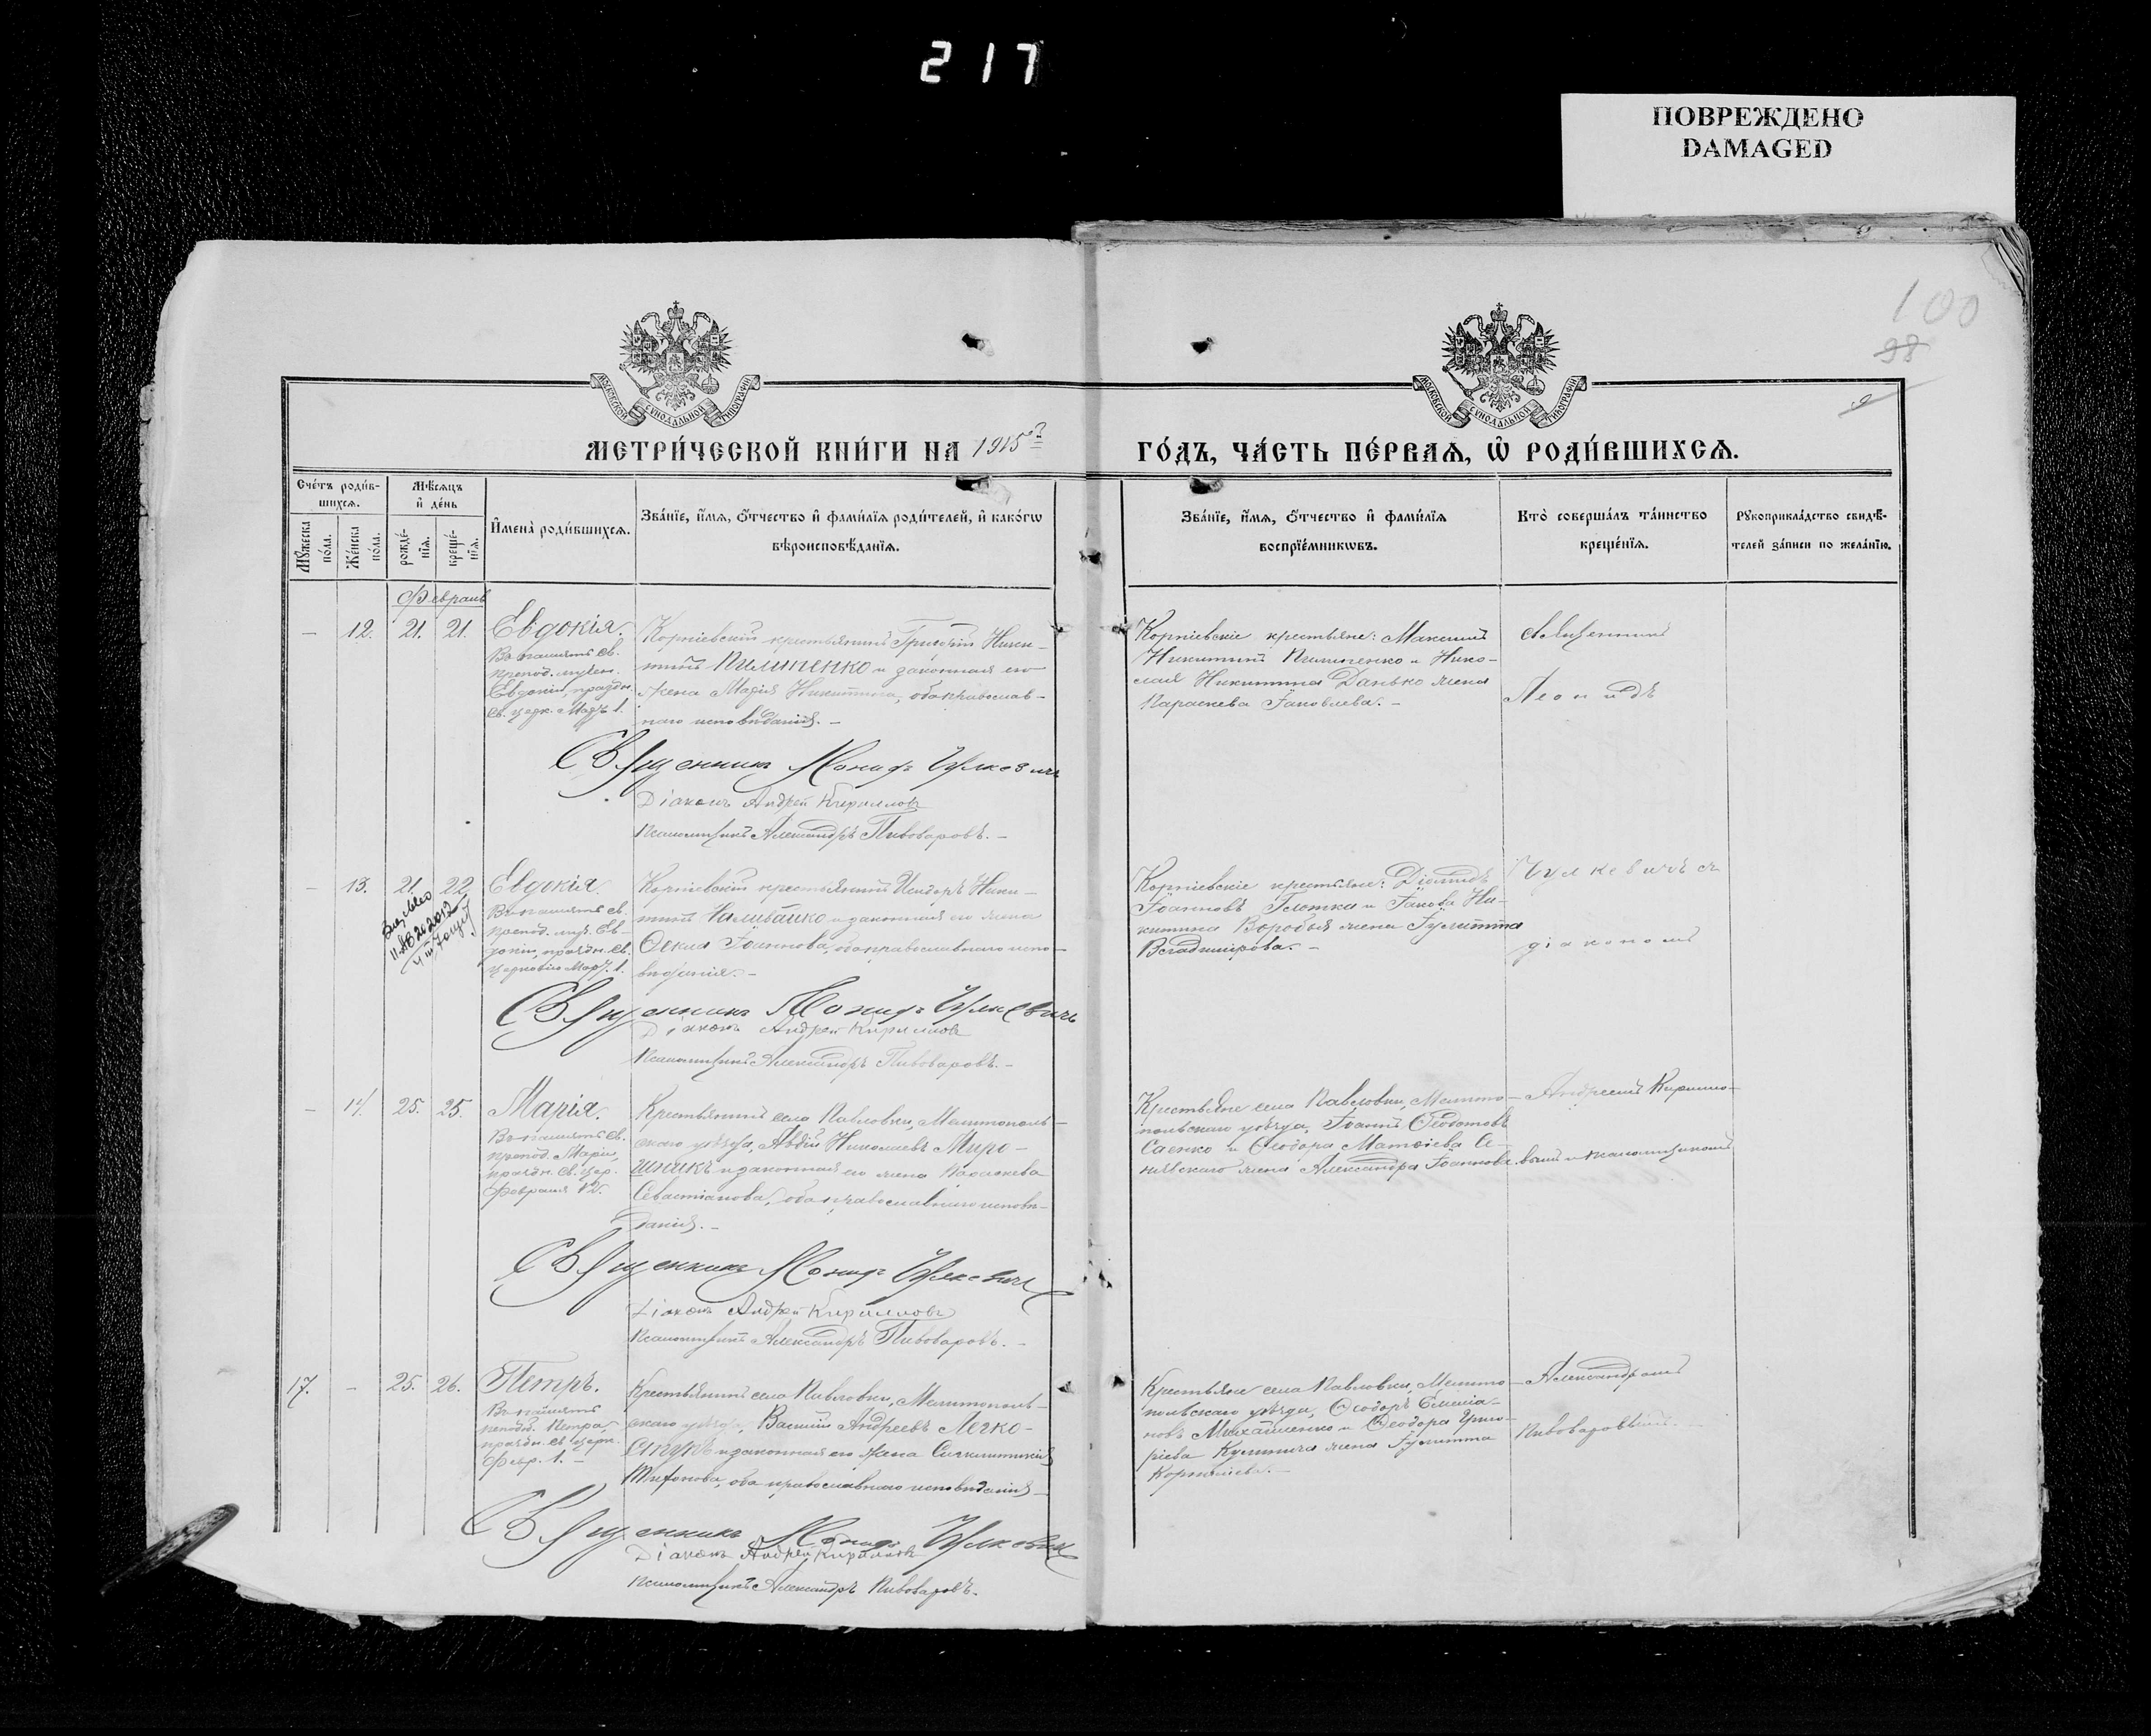 217
ПОВРЕЖДЕНО
DAMAGED
100
98
МОСКОВСКОЙ СУНОДАЛЬНОЙ ТИПОГРАФІИ
МОСКОВСКОЙ СУНОДАЛЬНОЙ ТИПОГРАФІИ
МЕТРИ́ЧЕСКОЙ КНИ́ГИ НА 1915 го
ГО́ДЪ, ЧА́СТЬ ПЕ́РВАѦ, Ѽ РОДИ́ВШИХСѦ.
Сче́тъ роди́в-
шихсѧ.
Мѣ́сѧцъ
и҆ де́нь
Мꙋ́жеска
по́ла.
Же́нска
по́ла.
рожде́-
нїѧ.
креще́-
нїѧ.
И҆мена̀ роди́вшихсѧ.
Зва́нїе, и҆́мѧ, ѻ҆́тчество и҆ фами́лїѧ роди́телей, и҆ како́гѡ
вѣроисповѣ́данїѧ.
Зва́нїе, и҆́мѧ, ѻ҆́тчество и҆ фами́лїѧ
воспрїе́мникѡвъ.
Кто̀ соверша́лъ та́инство
креще́нїѧ.
Рꙋкоприкла́дство свидѣ́-
телей за́писи по жела́нїю.
Февраль
– 12. 21. 21. Евдокія.
Въ память св.
препод. мучен.
Евдокіи, праздн.
св. церк. Мартъ 1.
Корніевскій крестьянинъ Григорій Ники-
тинъ Пилипенко и законная его
жена Марія Никитина, оба православ-
наго исповѣданія. –
Священникъ Леонидъ Чулкевичъ
Діаконъ Андрей Кирилловъ
Псаломщикъ Александръ Пивоваровъ. –
Корніевскіе крестьяне: Максимъ
Никитинъ Пилипенко и Нико-
лая Никитина Данько жена
Параскева Іаковлева. –
Священникъ
Леонидъ
– 13. 21. 22. Евдокія.
Въ память св.
препод. муч. Ев-
докіи, праздн. св.
церковію Март. 1.
Корніевскій крестьянинъ Исидоръ Ники-
тинъ Наливайко и законная его жена
Ѳекла Іоаннова, оба православнаго испо-
вѣданія. –
Священникъ Леонидъ Чулкевичъ
Діаконъ Андрей Кирилловъ
Псаломщикъ Александръ Пивоваровъ. –
Корніевскіе крестьяне: Діомидъ
Іоанновъ Глотка и Іакова Ни-
китина Воробья жена Іулитта
Владимірова. –
Чулкевичъ съ
діакономъ
– 14. 25. 25. Марія.
Въ память св.
препод. Маріи,
праздн. св. цер.
Февраля 12.
Крестьянинъ села Павловки, Мелитополь-
скаго уѣзда, Авдій Николаевъ Миро-
шникъ и законная его жена Параскева
Севастіанова, оба православнаго исповѣ-
данія. –
Священникъ Леонидъ Чулкевичъ
Діаконъ Андрей Кирилловъ
Псаломщикъ Александръ Пивоваровъ. –
Крестьяне села Павловки, Мелито-
польскаго уѣзда, Іоаннъ Ѳеодотовъ
Саенко и Ѳеодора Матѳіева Се-
нивскаго жена Александра Іоаннова.
Андреемъ Кирилло-
вымъ и псаломщикомъ
17. – 25. 26. Петръ.
Въ память
препод. Петра,
праздн. св. церк.
Февр. 1. –
Крестьянинъ села Павловки, Мелитополь-
скаго уѣзда, Василій Андреевъ Легко-
ступъ и законная его жена Синклитикія
Трифонова, оба православнаго исповѣданія –
Священникъ Леонидъ Чулкевичъ
Діаконъ Андрей Кирилловъ
Псаломщикъ Александръ Пивоваровъ.
Крестьяне села Павловки, Мелито-
польскаго уѣзда, Ѳеодоръ Емеліа-
новъ Михайленко и Ѳеодора Григо-
ріева Кулинича жена Іулитта
Корниліева. –
Александромъ
Пивоваровымъ. –